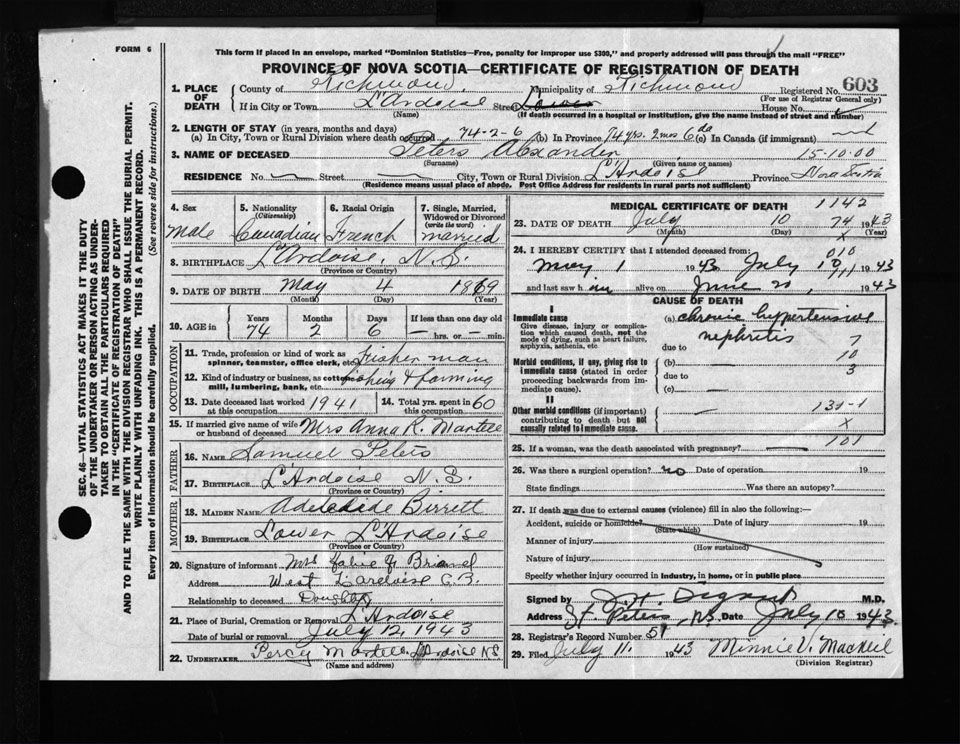 FORM 6
This form if placed in an envelope, marked "Dominion Statistics—Free, penalty for improper use $300," and properly addressed will pass through the mail "FREE"
PROVINCE OF NOVA SCOTIA—CERTIFICATE OF REGISTRATION OF DEATH
1. PLACE OF DEATH
County of Richmond Municipality of Richmond Registered No. 603
(For use of Registrar General only)
If in City or Town L'Ardoise Street Lower House No.
(Name) (If death occurred in a hospital or institution, give the name instead of street and number)
2. LENGTH OF STAY (in years, months and days)
(a) In City, Town or Rural Division where death occurred 74-2-6 (b) In Province 74 yrs. 2 mos 6 da (c) In Canada (if immigrant)
3. NAME OF DECEASED Peters Alexander 15-10-00
(Surname) (Given name or names)
RESIDENCE No. Street City, Town or Rural Division L'Ardoise Province Nova Scotia
(Residence means usual place of abode. Post Office Address for residents in rural parts not sufficient)
4. Sex Male
5. Nationality (Citizenship) Canadian
6. Racial Origin French
7. Single, Married, Widowed or Divorced (write the word) married
8. BIRTHPLACE L'Ardoise, N.S.
(Province or Country)
9. DATE OF BIRTH May 4 1869
(Month) (Day) (Year)
10. AGE in Years 74 Months 2 Days 6 If less than one day old — hrs. or — min.
OCCUPATION
11. Trade, profession or kind of work as spinner, teamster, office clerk, etc. fisherman
12. Kind of industry or business, as cotton mill, lumbering, bank, etc. fishing & farming
13. Date deceased last worked at this occupation 1941
14. Total yrs. spent in this occupation 60
15. If married give name of wife or husband of deceased Mrs Anna R. Martell
FATHER
16. NAME Samuel Peters
17. BIRTHPLACE L'Ardoise N.S.
(Province or Country)
MOTHER
18. MAIDEN NAME Adeledide Birrett
19. BIRTHPLACE Lower L'Ardoise
(Province or Country)
20. Signature of informant Mrs
Address West L'Ardoise C.B.
Relationship to deceased Doughter
21. Place of Burial, Cremation or Removal L'Ardoise
Date of burial or removal July 12, 1943
22. UNDERTAKER Percy Martell L'Ardoise N.S.
(Name and address)
MEDICAL CERTIFICATE OF DEATH 1142
23. DATE OF DEATH July 10 74 1943
(Month) (Day) X (Year)
24. I HEREBY CERTIFY that I attended deceased from: 010
May 1 1943 July 10 1943
and last saw him alive on June 20, 1943
CAUSE OF DEATH
I
Immediate cause
Give disease, injury or complication which caused death, not the mode of dying, such as heart failure, asphyxia, asthenia, etc.
(a) chronic hypertensive nephritis 7
due to 10
Morbid conditions, if any, giving rise to immediate cause (stated in order proceeding backwards from immediate cause).
(b) — 3
due to
(c) —
II
Other morbid conditions (if important) contributing to death but not causally related to immediate cause.
— 131-1
X
25. If a woman, was the death associated with pregnancy? — 101
26. Was there a surgical operation? no Date of operation 19
State findings Was there an autopsy?
27. If death was due to external causes (violence) fill in also the following:—
Accident, suicide or homicide? Date of injury 19
(State which)
Manner of injury
(How sustained)
Nature of injury
Specify whether injury occurred in industry, in home, or in public place
Signed by M.D.
Address St. Peters, N.S. Date July 10 1943
28. Registrar's Record Number 51
29. Filed July 11. 1943 Minnie V. MacNeil
(Division Registrar)
SEC. 46—VITAL STATISTICS ACT MAKES IT THE DUTY
OF THE UNDERTAKER OR PERSON ACTING AS UNDER-
TAKER TO OBTAIN ALL THE PARTICULARS REQUIRED
IN THE "CERTIFICATE OF REGISTRATION OF DEATH"
AND TO FILE THE SAME WITH THE DIVISION REGISTRAR WHO SHALL ISSUE THE BURIAL PERMIT.
WRITE PLAINLY WITH UNFADING INK. THIS IS A PERMANENT RECORD.
Every item of information should be carefully supplied. (See reverse side for instructions.)